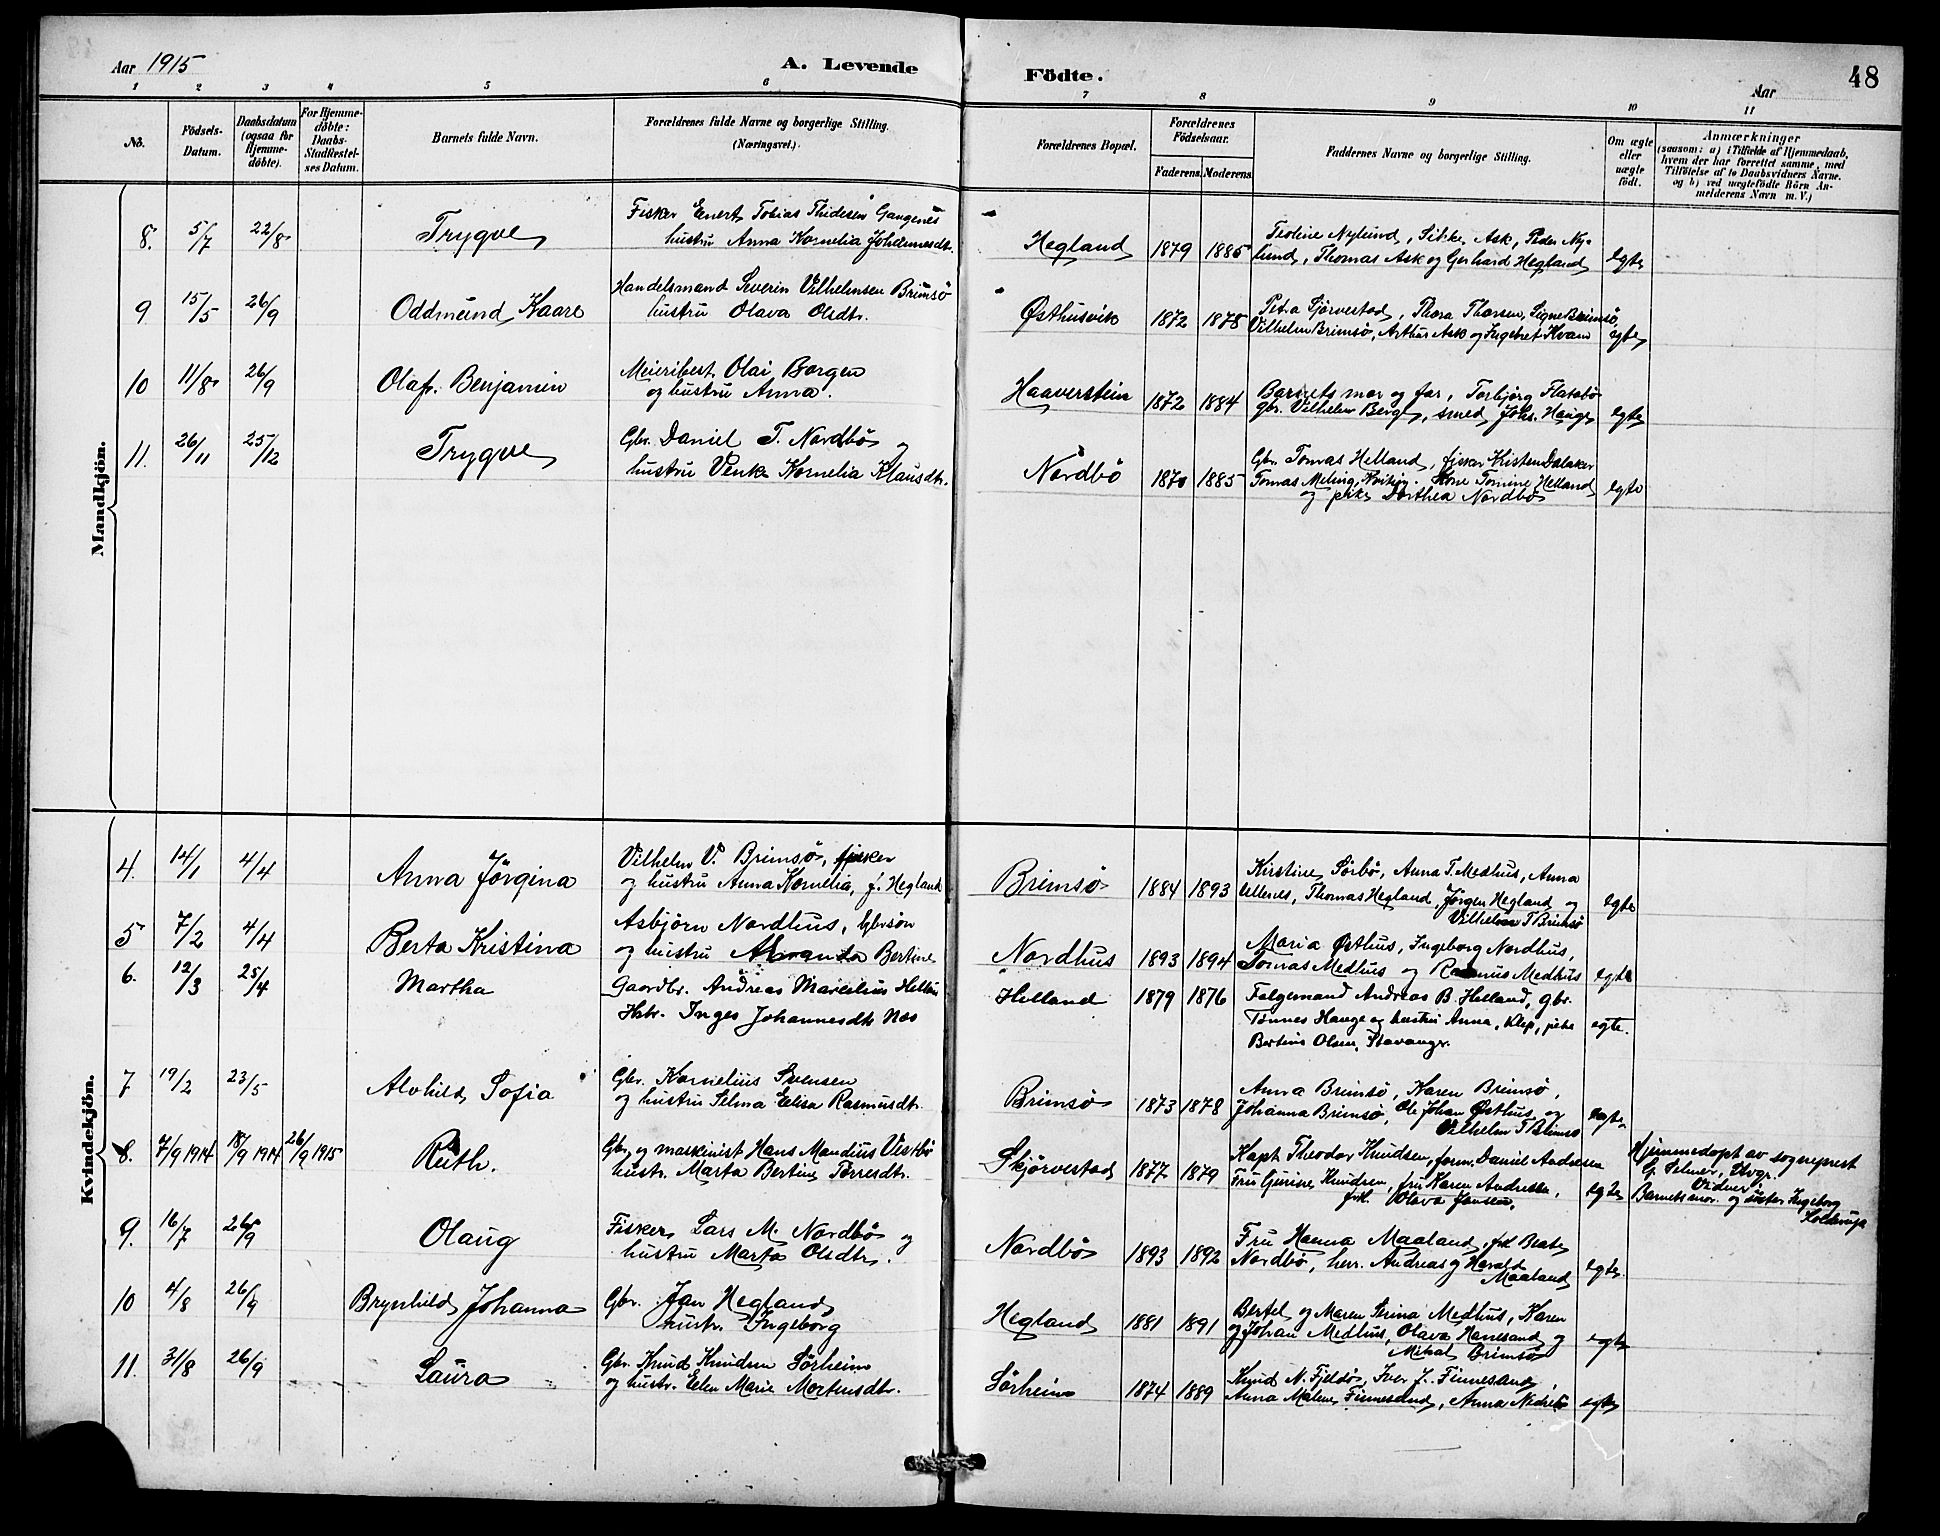 Aar 1915
A. Levende
Födte.
Aar
48
1 2 3 4 5 6 7 8 9 10 11
No.
Födsels-
Datum.
Daabsdatum
(ogsaa for
Hjemme-
döbte).
For Hjemme-
döbte:
Daabs-
Stadfæstel-
ses Datum.
Barnets fulde Navn.
Forældrenes fulde Navne og borgerlige Stilling.
(Næringsvei.)
Forældrenes Bopæl.
Forældrenes
Födselsaar.
Faderens. Moderens.
Faddernes Navne og borgerlige Stilling.
Om ægte
eller
uægte
födt.
Anmærkninger
(saasom: a) i Tilfælde af Hjemmedaab,
hvem der har forrettet samme, med
Tilföielse af to Daabsvidners Navne.
og b) ved uægtefödte Börn An-
melderens Navn m. V.)
Mandkjön.
8. 5/7 22/8 Trygve
Fisker Enert Tobias Thidesen Gangenes
hustru Anna Kornelia Johannesdt.
Hegland 1879 1885
Teoline Nylund, Sikke Ask, Peder Ny-
lund, Thomas Ask og Gerhard Hegland
egte
9. 15/5 26/9 Oddmund Kaare
Handelsmand Severin Vilhelmsen Brimsö
hustru Olava Olsdtr.
Østhusvik 1872 1875
Petra Sjörvestad, Thora Thorsen, Signe Brimsö,
Vilhelm Brimsö, Arthur Ask og Ingebret Hvam
egte
10 11/8 26/9 Olaf Benjamin
Meieribest. Olai Borgen
og hustru Anna.
Haaverstein 1872 1884
Barnets mor og far, Torbjörg Flatebö
gbr. Vilhelm Berge, smed Johs. Hauge
egte
11. 26/11 25/12 Trygve
Gbr. Daniel T. Nordbö og
hustru Venke Kornelia Klausdtr.
Nordbö 1870 1885
Gbr. Tomas Helland, fisker Kristen Dalaker
Tomas Meling, Kvitsøy. Kone Tomine Helland
og pike Dorthea Nordbö
egte
Kvindekjön.
4. 14/1 4/4 Anna Jörgina
Vilhelm V. Brimsö, fisker
og hustru Anna Kornelia, f. Hegland
Brimsö 1884 1893
Kirstine Sörbö, Anna T. Medhus, Anna
Ullenes, Thomas Hegland, Jörgen Hegland og
Vilhelm T Brimsö
egte
5 7/2 4/4 Berta Kristina
Asbjörn Nordhus, Gbrsön
og hustru Amanda Bertine
Nordhus 1893 1894
Maria Østhus, Ingeborg Nordhus,
Tomas Medhus og Rasmus Medhus
egte
6. 12/3 25/4 Martha
Gaardbr. Andreas Marcelius Helland
Hstr. Inger Johannesdtr Næs
Helland 1879 1876
Følgemand Andreas B. Helland, gbr.
Tønnes Hauge og hustru Anna, Klep, pike
Bertine Olsen, Stavanger.
egte.
7 19/2 23/5 Alvhild Sofia
Gbr. Kornelius Svensen
og hustru Selma Elisa Rasmusdtr.
Brimsö 1873 1878
Anna Brimsö, Karen Brimsö,
Johanna Brimsö, Ole Johan Østhus og
Vilhelm T Brimsö
egte
8. 7/9 1914 18/9 1914 26/9 1915 Ruth.
Gbr. og maskinist Hans Mandius Vestbö
hustr. Marta Bertine Torresdtr.
Skjörvestad 1877 1879
Kapt. Theodor Knudsen, form. Daniel Andresen
Fru Gurine Knudsen, fru Karen Andresen,
frk. Olava Jansen.
egte
Hjemmedöpt av sogneprest
G. Selmer, Stvgr.
Vidner:
Barnets mor. og søster Ingeborg
9. 16/7 26/9 Olaug
Fisker Lars M. Nordbö og
hustru Marta Olsdtr.
Nordbö 1893 1892
Fru Hanna Maaland, frk Beate
Nordbö, herr. Andreas og Harald
Maaland
egte.
10 4/8 26/9 Brynhild Johanna
Gbr. Jan Hegland
hustr. Ingeborg
Hegland 1881 1891
Bertel og Maren Serina Medhus, Karen
og Johan Medhus, Olava Hanesand og
Mikal Brimsö
egte
11. 31/8 26/9 Laura
Gbr. Knud Knudsen Sörheim
og hustr. Elen Marie Mortensdtr.
Sörheim 1874 1889
Knud N. Fjeldö, Iver J. Finnesand,
Anna Malene Finnesand, Anna Nedrebö
egte